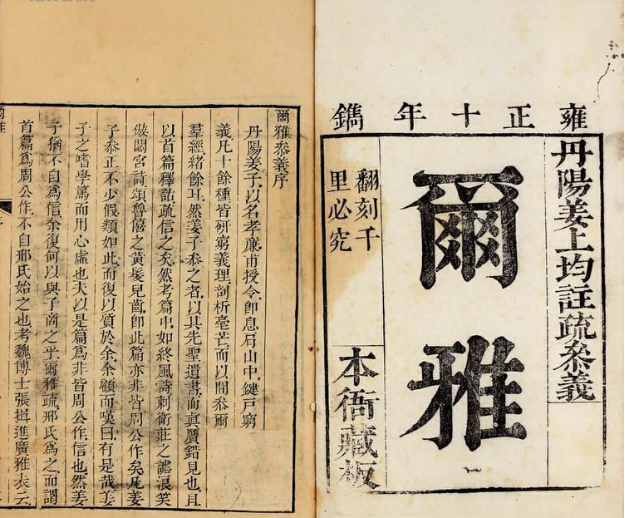 雍正十年鐫
丹陽姜上均註疏叅義
爾雅
翻刻千
里必究
本衙藏板
爾雅叅義序
丹陽姜子以名孝廉甫授令即息肩山中鍵戶窮
義凡十餘種皆研窮義理剖析毫芒而以間叅爾
羣經緒餘耳然姜子叅之者以其先聖遺書而真贗錯見也且
以首篇釋詁疏信之矣然考篇中如終風詩刺衛莊之謔浪笑
傲閟宮詩頌魯僖之黃髮兒齒即此篇亦非皆周公作矣凡姜
子叅正不少假類如此而復以質於余余顧而嘆曰有是哉姜
子之嗜學篤而用心虛也夫以是篇為非皆周公作信也然姜
子猶不自為信余復何以與子商之乎爾雅疏邢氏為之而謂
首篇為周公作不自邢氏始之也考魏博士張揖進廣雅表云